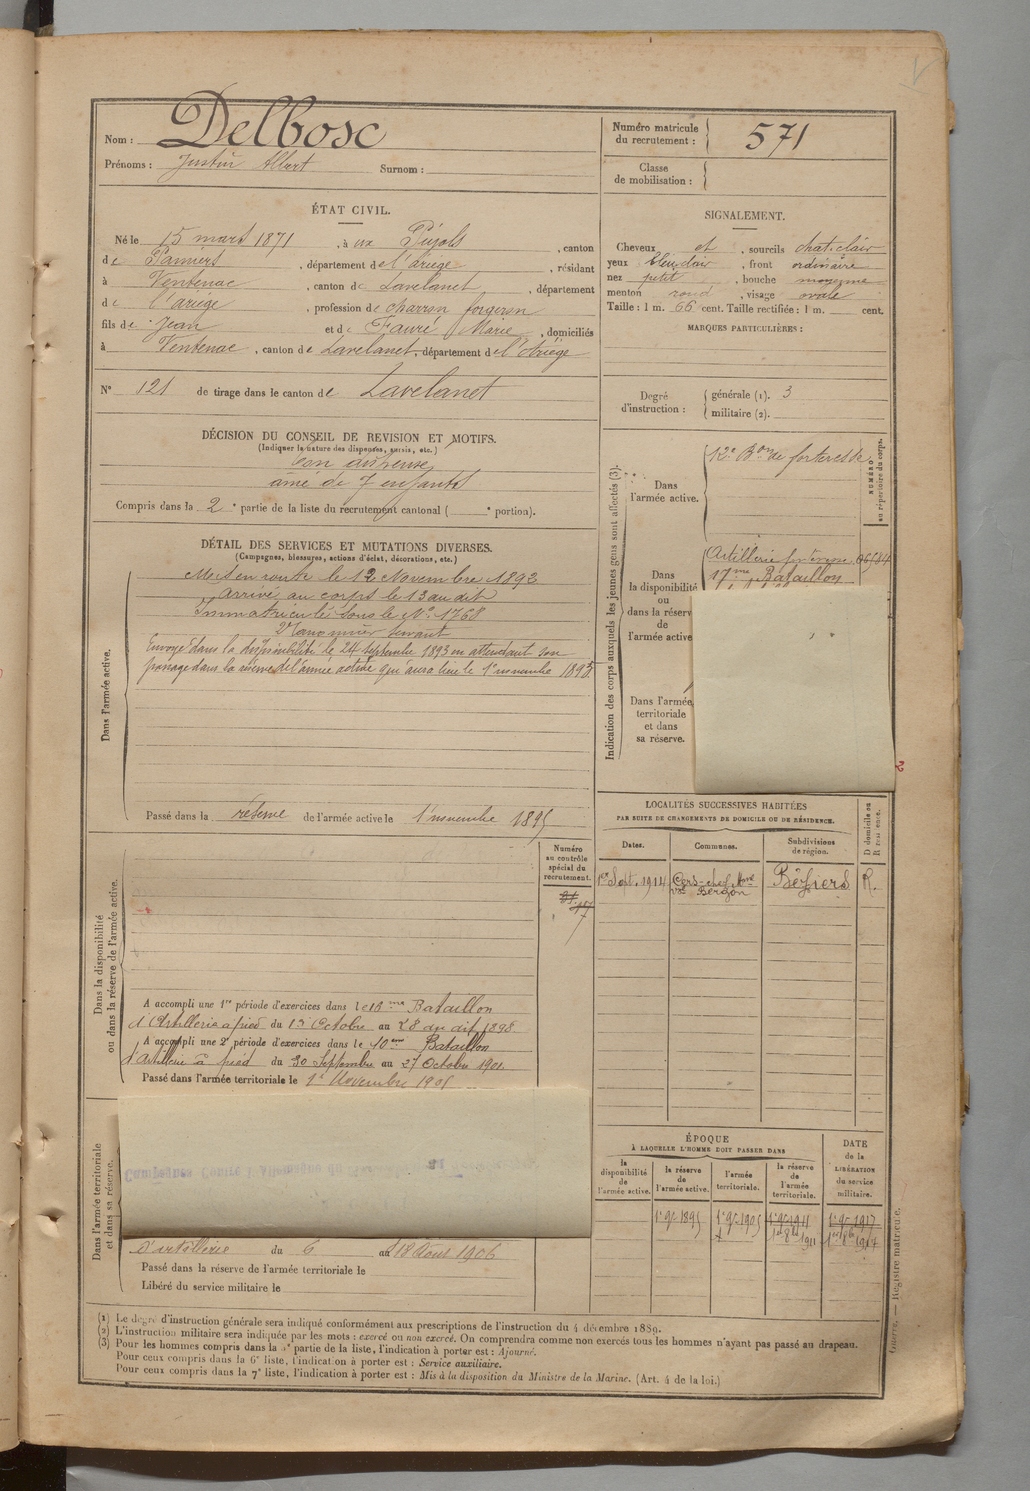 Nom : Delbosc
Prénoms : Justin Albert Surnom :
Numéro matricule
du recrutement : 571
Classe
de mobilisation :
ÉTAT CIVIL.
Né le 15 mars 1871, à aux Pujols, canton
de Pamiers, département de l'Ariège, résidant
à Ventenac, canton de Lavelanet, département
de l'Ariège, profession de charron forgeron
fils de Jean et de Fauré Marie, domiciliés
à Ventenac, canton de Lavelanet, département de l'Ariège
N° 121 de tirage dans le canton de Lavelanet
SIGNALEMENT.
Cheveux et, sourcils chat. clair
yeux bleu clair, front ordinaire
nez petit, bouche moyenne
menton rond, visage ovale
Taille : 1 m. 66 cent. Taille rectifiée : 1 m. cent.
MARQUES PARTICULIÈRES :
Degré
d'instruction :
générale (1). 3
militaire (2).
DÉCISION DU CONSEIL DE REVISION ET MOTIFS.
(Indiquer la nature des dispenses, sursis, etc.)
Bon dispensé
aîné de 7 enfants
Compris dans la 2e partie de la liste du recrutement cantonal ( e portion).
DÉTAIL DES SERVICES ET MUTATIONS DIVERSES.
(Campagnes, blessures, actions d'éclat, décorations, etc.)
Dans l'armée active.
Mis en route le 12 Novembre 1892
Arrivé au corps le 13 au dit
Immatriculé sous le N° 1768
2e canonnier servant
Envoyé dans la disponibilité le 24 septembre 1893 en attendant son
passage dans la réserve de l'armée active qui aura lieu le 1er novembre 1895
Passé dans la réserve de l'armée active le 1er novembre 1895
Indication des corps auxquels les jeunes gens sont affectés (3).
NUMÉRO
au répertoire du corps.
Dans
l'armée active.
12e Bon de forteresse
Dans
la disponibilité
ou
dans la réserve
de
l'armée active
Artillerie
17me Bataillon
Dans l'armée
territoriale
et dans
sa réserve.
Dans la disponibilité
ou dans la réserve de l'armée active.
Numéro
au contrôle
spécial du
recrutement.
17
A accompli une 1re période d'exercices dans le 10me Bataillon
d'Artillerie à pied du 1er Octobre au 28 du dit 1898
A accompli une 2e période d'exercices dans le 10eme Bataillon
d'Artillerie à pied du 30 Septembre au 27 Octobre 1901.
Passé dans l'armée territoriale le 1er Novembre 1905
LOCALITÉS SUCCESSIVES HABITÉES
PAR SUITE DE CHANGEMENTS DE DOMICILE OU DE RÉSIDENCE.
Dates.
Communes.
Subdivisions
de région.
D domicile ou
R résidence.
1er Sept. 1914
Béziers
R.
Dans l'armée territoriale
et dans sa réserve.
d'artillerie du 6 au 18 Août 1906
Passé dans la réserve de l'armée territoriale le
Libéré du service militaire le
ÉPOQUE
À LAQUELLE L'HOMME DOIT PASSER DANS
la
disponibilité
de
l'armée active.
la réserve
de
l'armée active.
l'armée
territoriale.
la réserve
de
l'armée
territoriale.
DATE
de la
LIBÉRATION
du service
militaire.
1er 9e 1895
1er 9e 1905
1er 9e 1911
1er 9e 1917
1er 8e 1911
(1) Le degré d'instruction générale sera indiqué conformément aux prescriptions de l'instruction du 4 décembre 1889.
(2) L'instruction militaire sera indiquée par les mots : exercé ou non exercé. On comprendra comme non exercés tous les hommes n'ayant pas passé au drapeau.
(3) Pour les hommes compris dans la 5e partie de la liste, l'indication à porter est : Ajourné.
Pour ceux compris dans la 6e liste, l'indication à porter est : Service auxiliaire.
Pour ceux compris dans la 7e liste, l'indication à porter est : Mis à la disposition du Ministre de la Marine. (Art. 4 de la loi.)
Guerre. — Registre matricule.